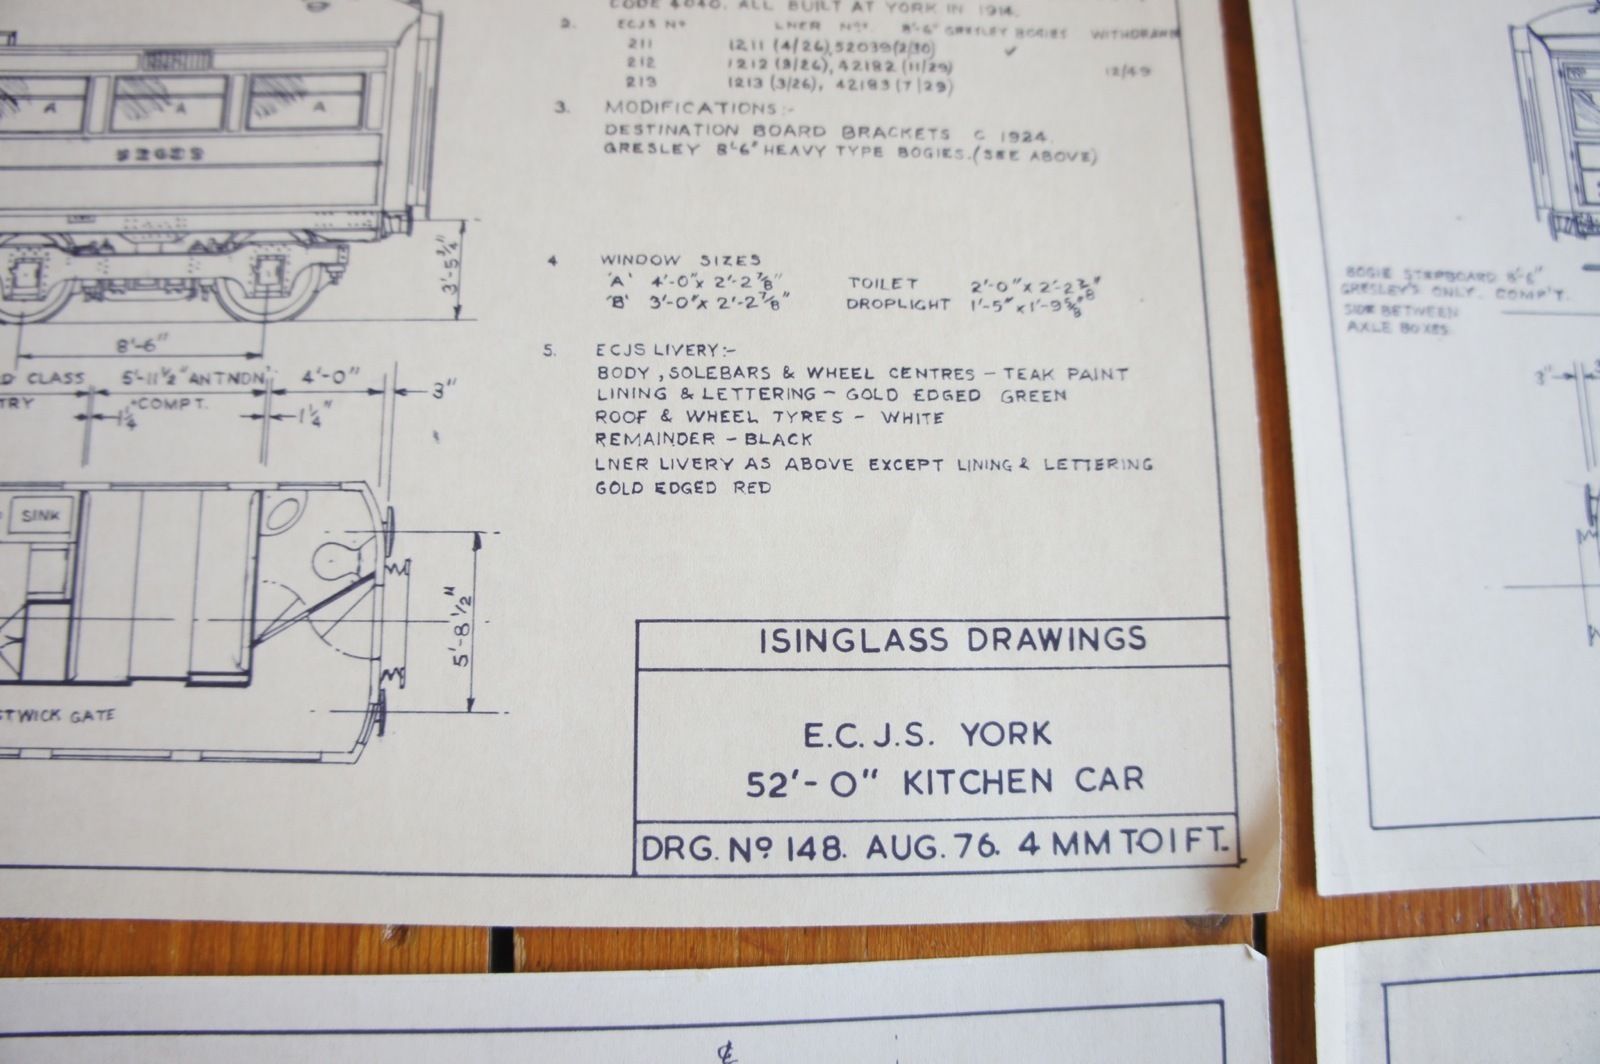 CODE 4040. ALL BUILT AT YORK IN 1914.
2. ECJS Nº LNER Nºs. 8'-6" GRESLEY BOGIES WITHDRAWN
211 1211 (4/26), 52039 (2/30) ✓
212 1212 (3/26), 42182 (11/29) 12/49
213 1213 (3/26), 42183 (7/29)
3. MODIFICATIONS:-
DESTINATION BOARD BRACKETS C 1924.
GRESLEY 8'-6" HEAVY TYPE BOGIES. (SEE ABOVE)
4 WINDOW SIZES
'A' 4'-0" x 2'-2⅞" TOILET 2'-0" x 2'-2⅞"
'B' 3'-0" x 2'-2⅞" DROPLIGHT 1'-5" x 1'-9⅝"
5. ECJS LIVERY:-
BODY, SOLEBARS & WHEEL CENTRES - TEAK PAINT
LINING & LETTERING - GOLD EDGED GREEN
ROOF & WHEEL TYRES - WHITE
REMAINDER - BLACK
LNER LIVERY AS ABOVE EXCEPT LINING & LETTERING
GOLD EDGED RED
A A A
3'-5¾"
8'-6"
D CLASS 5'-11½" ANTNDN' 4'-0" 3"
TRY 1¼" COMPT. 1¼"
SINK
5'-8½"
TWICK GATE
ISINGLASS DRAWINGS
E.C.J.S. YORK
52'-0" KITCHEN CAR
DRG. Nº 148. AUG. 76. 4 MM TO 1 FT.
BOGIE STEPBOARD 8'-6"
GRESLEY'S ONLY. COMP'T.
SIDE BETWEEN
AXLE BOXES
3"
℄